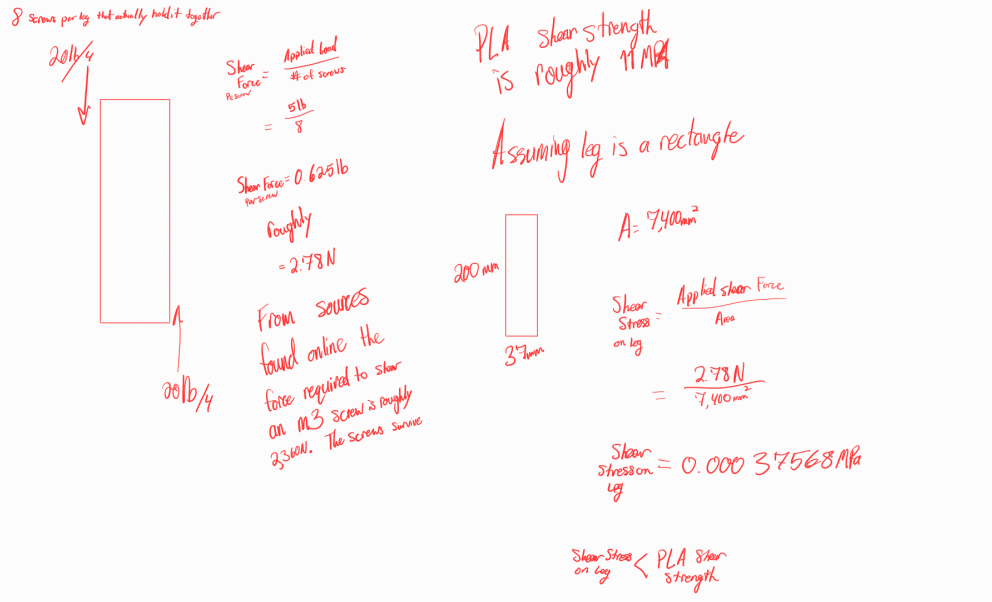 8 screws per leg that actually hold it together
20lb/4
20lb/4
Shear Force Per screw = Applied Load / # of screws
= 5lb / 8
Shear Force Per screw = 0.625lb
roughly
= 2.78N
From sources
found online the
force required to shear
an m3 screw is roughly
2,360N. The screws survive
PLA shear strength
is roughly 11 MPA
Assuming leg is a rectangle
200mm
37mm
A = 7,400mm²
Shear Stress on leg = Applied shear Force / Area
= 2.78N / 7,400mm²
Shear Stress on leg = 0.00037568MPa
Shear Stress on leg < PLA Shear Strength